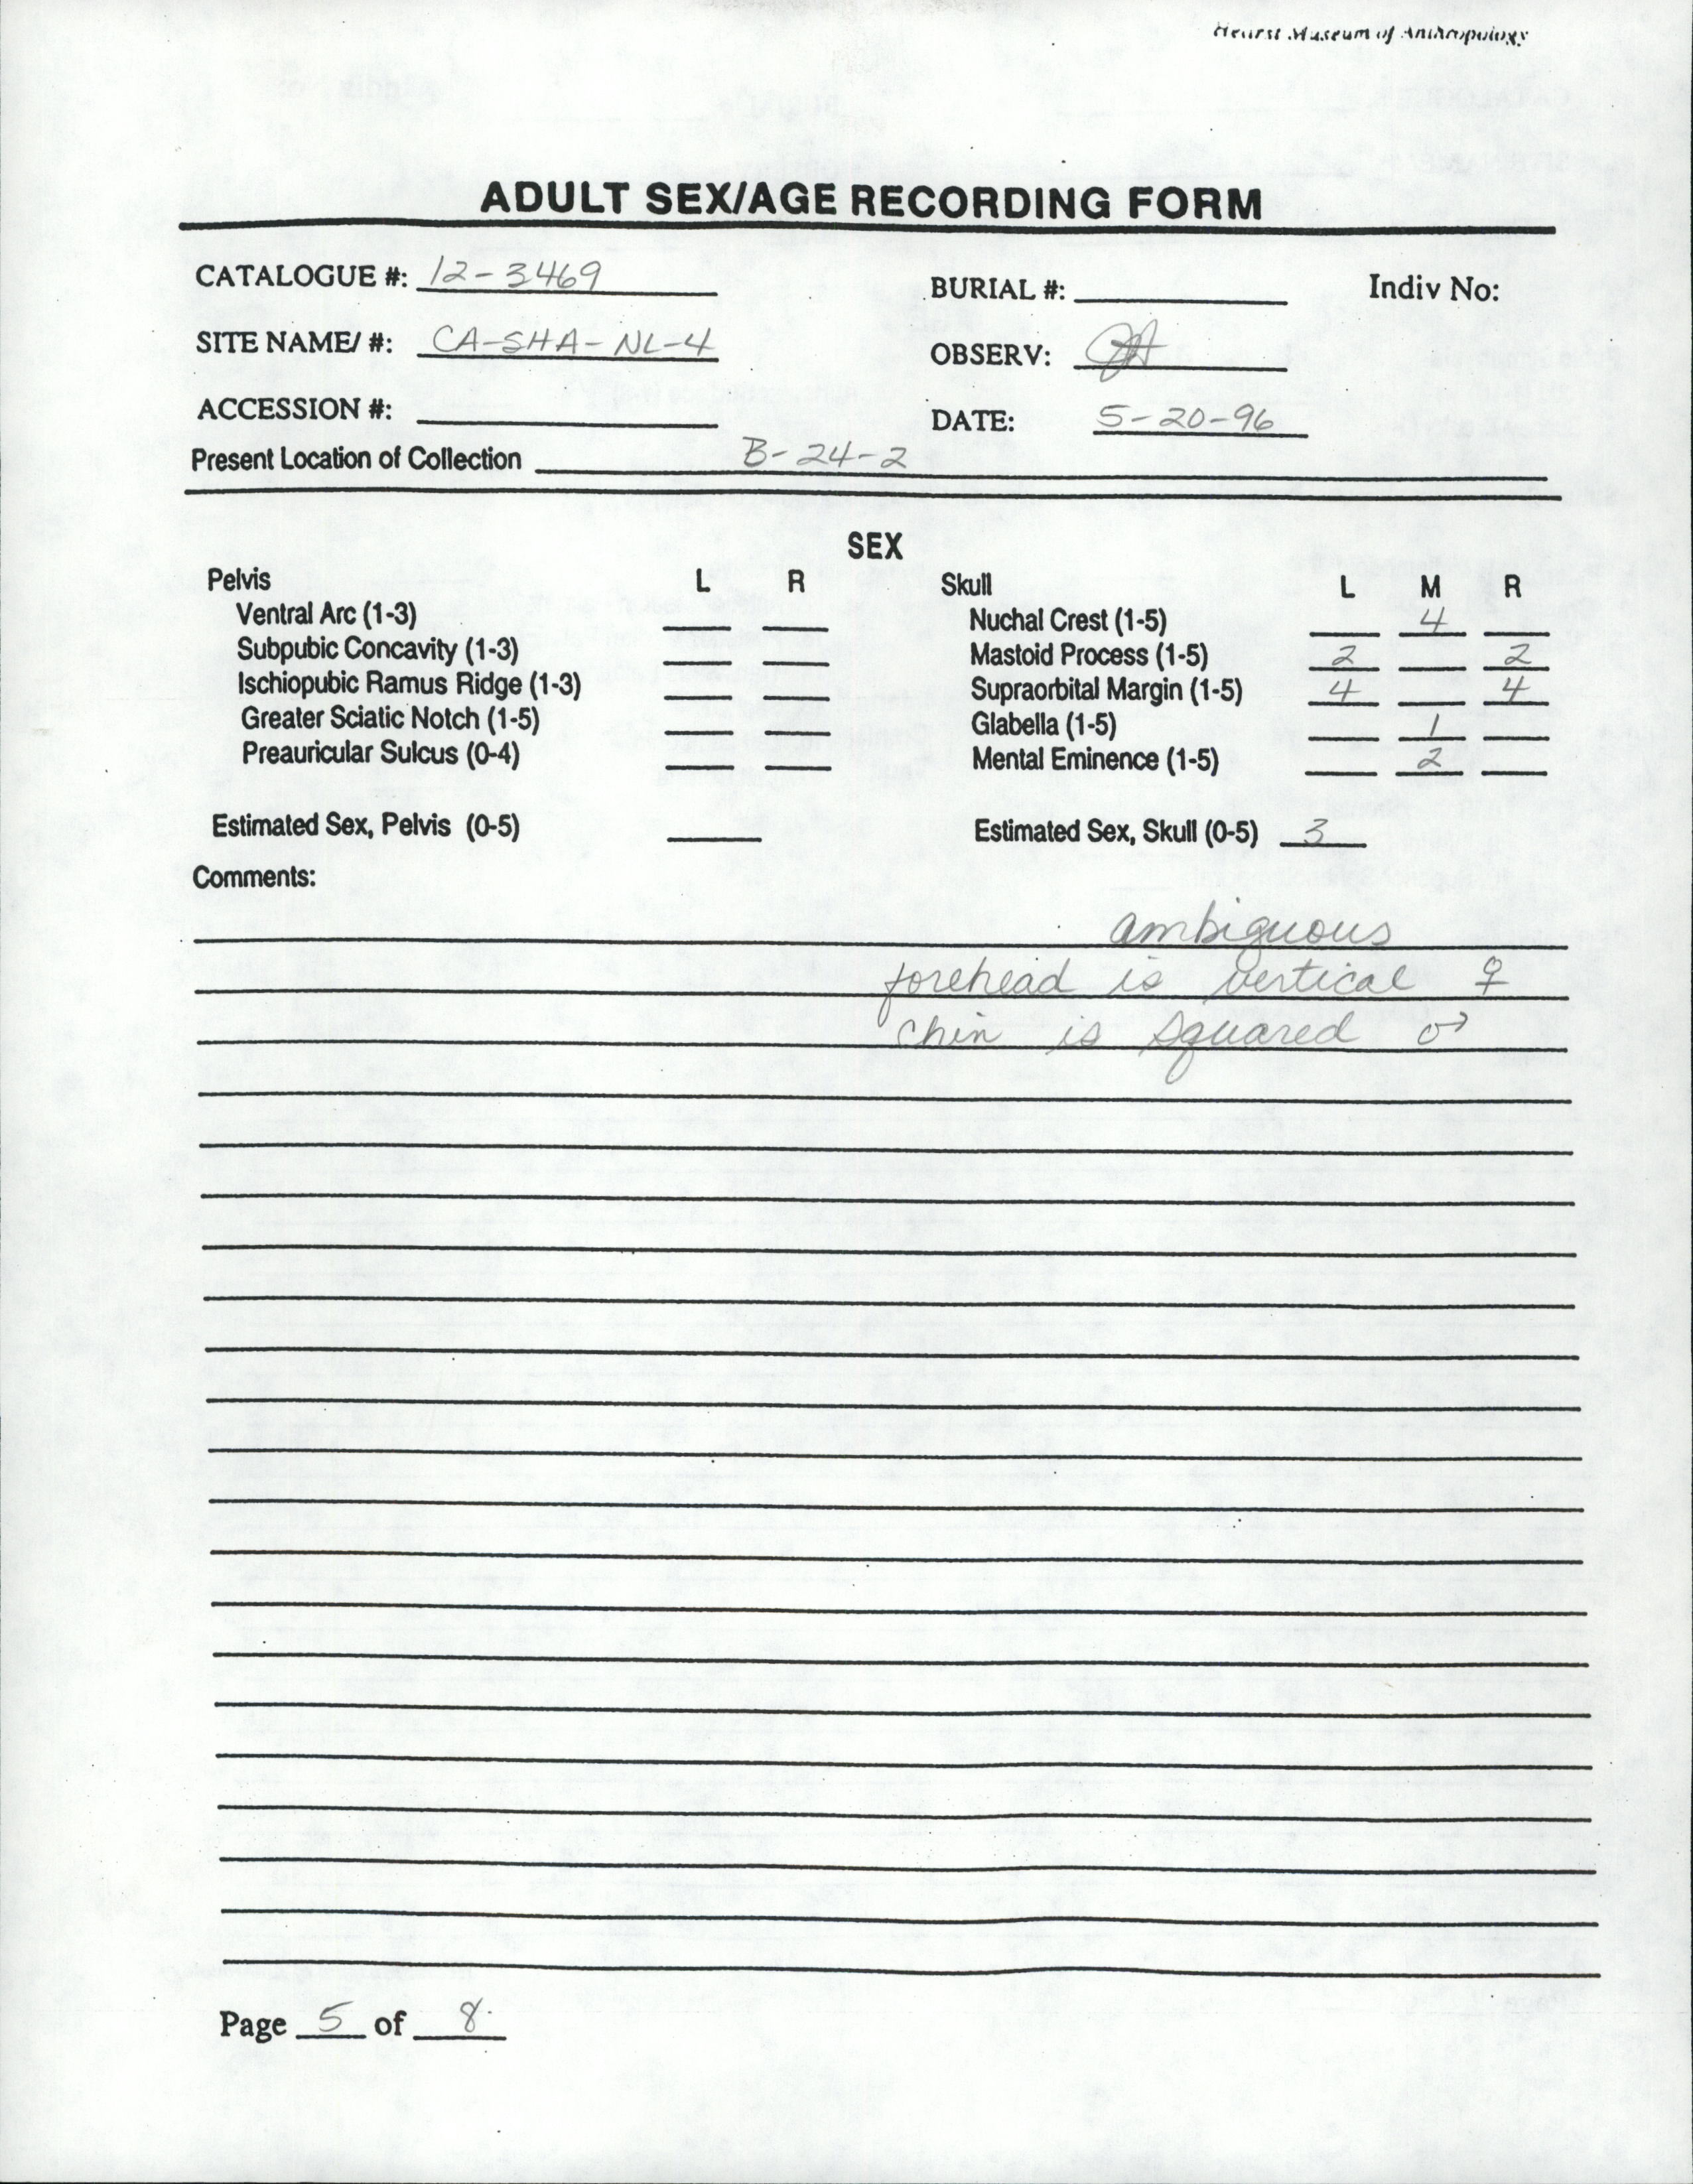 Hearst Museum of Anthropology
ADULT SEX/AGE RECORDING FORM
CATALOGUE #: 12-3469 BURIAL #: Indiv No:
SITE NAME/ #: CA-SHA-NL-4 OBSERV:
ACCESSION #: DATE: 5-20-96
Present Location of Collection B-24-2
SEX
Pelvis L R Skull L M R
Ventral Arc (1-3) Nuchal Crest (1-5) 4
Subpubic Concavity (1-3) Mastoid Process (1-5) 2 2
Ischiopubic Ramus Ridge (1-3) Supraorbital Margin (1-5) 4 4
Greater Sciatic Notch (1-5) Glabella (1-5) 1
Preauricular Sulcus (0-4) Mental Eminence (1-5) 2
Estimated Sex, Pelvis (0-5) Estimated Sex, Skull (0-5) 3
Comments:
ambiguous
forehead is vertical ♀
chin is squared ♂
Page 5 of 8